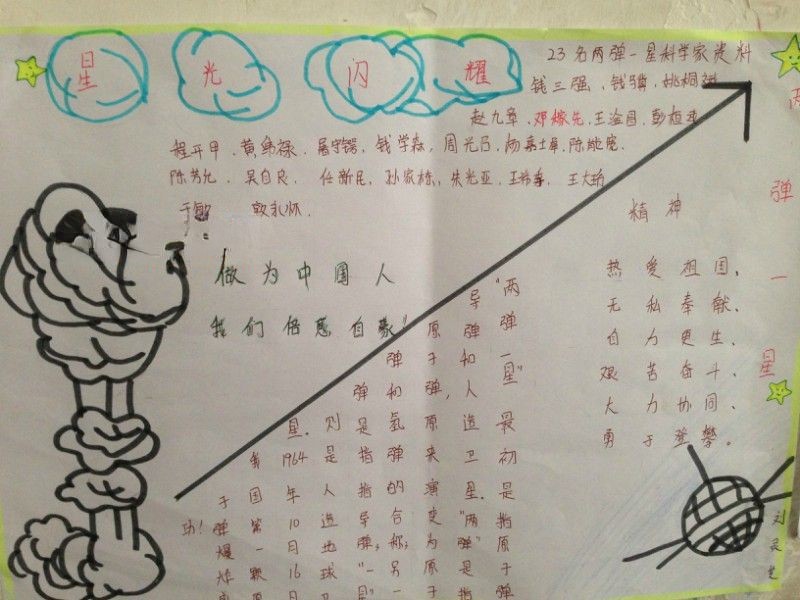 星光闪耀
23名两弹一星科学家资料
钱三强、钱骥、姚桐斌
赵九章、邓稼先、王淦昌、彭桓武
程开甲、黄纬禄、屠守锷、钱学森、周光召、杨嘉墀、陈能宽、
陈芳允、吴自良、任新民、孙家栋、朱光亚、王希季、王大珩
于敏
做为中国人
我们倍感自豪"
"两弹一星"最初是指原子弹
导弹和人造卫星."两弹"是指
原子弹,原来演变为原子
弹和氢弹的合称,另一
弹是指导弹;"一星"
星.则是人造地球卫
1964年10月16日
国第一颗原
子弹爆炸成
功!
精神
热爱祖国、
无私奉献、
自力更生、
艰苦奋斗、
大力协同、
勇于登攀。
两弹一星